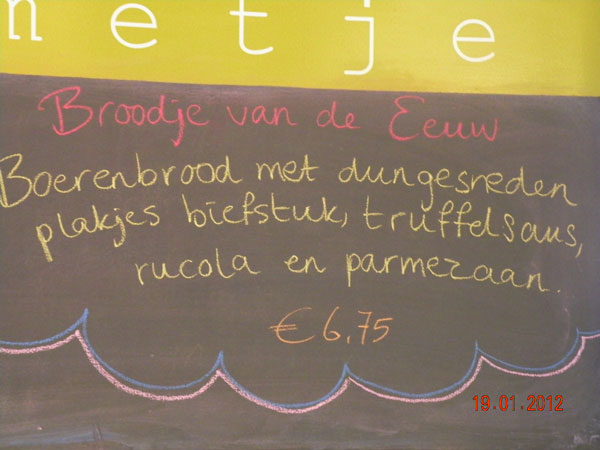 netje
Broodje van de Eeuw
Boerenbrood met dungesneden
plakjes biefstuk, truffelsaus,
rucola en parmezaan.
€ 6,75
19.01.2012